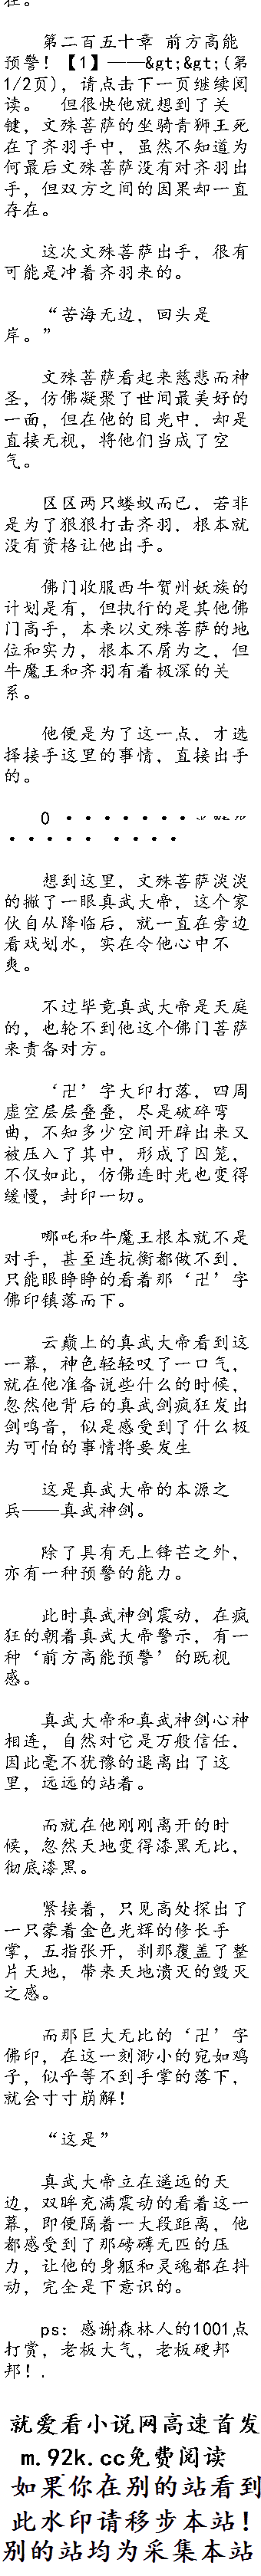 在。
第二百五十章 前方高能
预警！【1】——&gt;&gt;(第
1/2页)，请点击下一页继续阅
读。 但很快他就想到了关
键，文殊菩萨的坐骑青狮王死
在了齐羽手中，虽然不知道为
何最后文殊菩萨没有对齐羽出
手，但双方之间的因果却一直
存在。
这次文殊菩萨出手，很有
可能是冲着齐羽来的。
“苦海无边，回头是
岸。”
文殊菩萨看起来慈悲而神
圣，仿佛凝聚了世间最美好的
一面，但在他的目光中，却是
直接无视，将他们当成了空
气。
区区两只蝼蚁而已，若非
是为了狠狠打击齐羽，根本就
没有资格让他出手。
佛门收服西牛贺州妖族的
计划是有，但执行的是其他佛
门高手，本来以文殊菩萨的地
位和实力，根本不屑为之，但
牛魔王和齐羽有着极深的关
系。
他便是为了这一点，才选
择接手这里的事情，直接出手
的。
0 ·······
···· ····
想到这里，文殊菩萨淡淡
的撇了一眼真武大帝，这个家
伙自从降临后，就一直在旁边
看戏划水，实在令他心中不
爽。
不过毕竟真武大帝是天庭
的，也轮不到他这个佛门菩萨
来责备对方。
‘卍’字大印打落，四周
虚空层层叠叠，尽是破碎弯
曲，不知多少空间开辟出来又
被压入了其中，形成了囚笼，
不仅如此，仿佛连时光也变得
缓慢，封印一切。
哪吒和牛魔王根本就不是
对手，甚至连抗衡都做不到，
只能眼睁睁的看着那‘卍’字
佛印镇落而下。
云巅上的真武大帝看到这
一幕，神色轻轻叹了一口气，
就在他准备说些什么的时候，
忽然他背后的真武剑疯狂发出
剑鸣音，似是感受到了什么极
为可怕的事情将要发生
这是真武大帝的本源之
兵——真武神剑。
除了具有无上锋芒之外，
亦有一种预警的能力。
此时真武神剑震动，在疯
狂的朝着真武大帝警示，有一
种‘前方高能预警’的既视
感。
真武大帝和真武神剑心神
相连，自然对它是万般信任，
因此毫不犹豫的退离出了这
里，远远的站着。
而就在他刚刚离开的时
候，忽然天地变得漆黑无比，
彻底漆黑。
紧接着，只见高处探出了
一只蒙着金色光辉的修长手
掌，五指张开，刹那覆盖了整
片天地，带来天地溃灭的毁灭
之感。
而那巨大无比的‘卍’字
佛印，在这一刻渺小的宛如鸡
子，似乎等不到手掌的落下，
就会寸寸崩解！
“这是”
真武大帝立在遥远的天
边，双眸充满震动的看着这一
幕，即便隔着一大段距离，他
都感受到了那磅礴无匹的压
力，让他的身躯和灵魂都在抖
动，完全是下意识的。
ps：感谢森林人的1001点
打赏，老板大气，老板硬邦
邦！.
就爱看小说网高速首发
m.92k.cc免费阅读
如果你在别的站看到
此水印请移步本站！
别的站均为采集本站